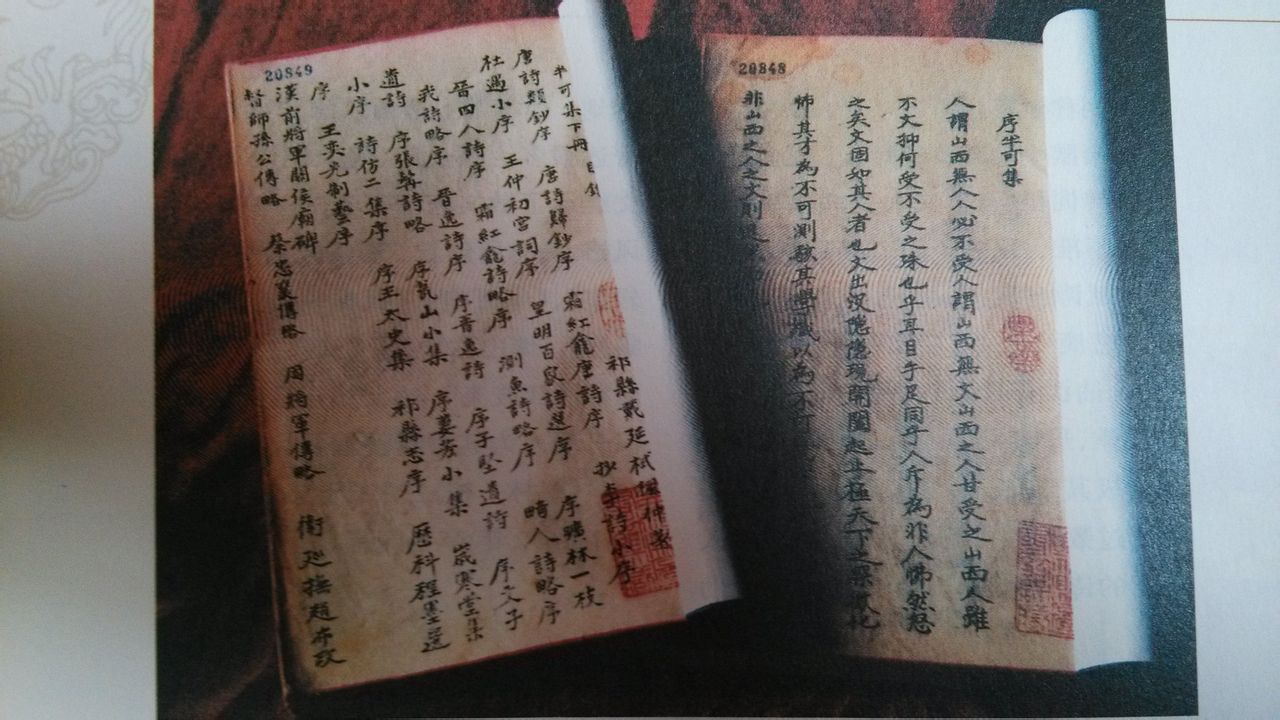 20848
序半可集
人謂山西無人人必不受人謂山西無文山西之人甘受之山西人雖
不文抑何受不受之殊也乎耳目手足同乎人斥為非人怫然怒
之矣文固如其人者也文出沒隱隱現開闔起止極天下之
怖其才為不可測駭其學識以為不可
非山西之人之文則
20849
半可集下冊 目錄
祁縣戴廷栻楓仲
唐詩類鈔序 唐詩歸鈔序 霜紅龕唐詩序 抄李詩小序
杜遇小序 王仲初宮詞序 皇明百家詩選序 序曠林一枝
晉四人詩序 霜紅龕詩略序 測魚詩略序 疇人詩略序
我詩略序 晉逸詩序 序晉逸詩 序子堅遺詩 序文子
遺詩 序張 詩略 序 山小集 序 小集 歲寒堂集
小序 詩仿二集序 序王太史集 祁縣志序 歷科程墨選
序 王奕先制藝序
漢前將軍關侯廟碑
督師孫公傳略 蔡忠襄傳略 周將軍傳略 衛廵撫趙布政